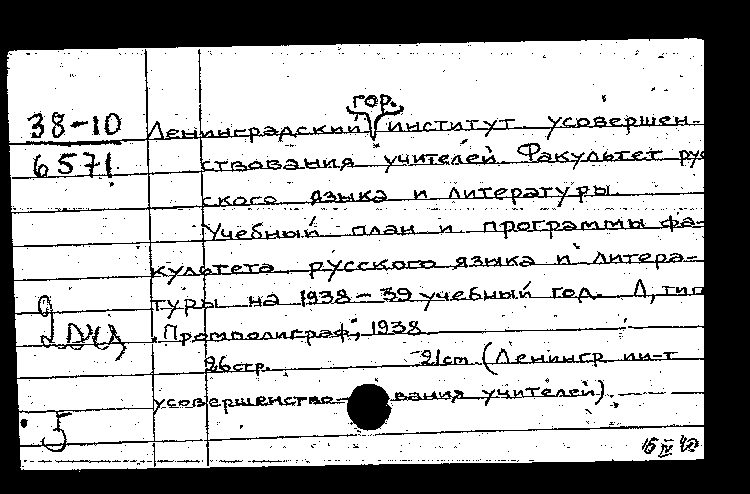 гор.
38-10 Ленинградский институт усовершен-
6571 ствования учителей. Факультет рус
ского языка и литературы.
Учебный план и программы фа-
культета русского языка и литера-
туры на 1938-39 учебный год. Л, тип
"Промполиграф", 1938
26стр. 21cm (Ленингр ин-т
усовершенство- вания учителей).
5